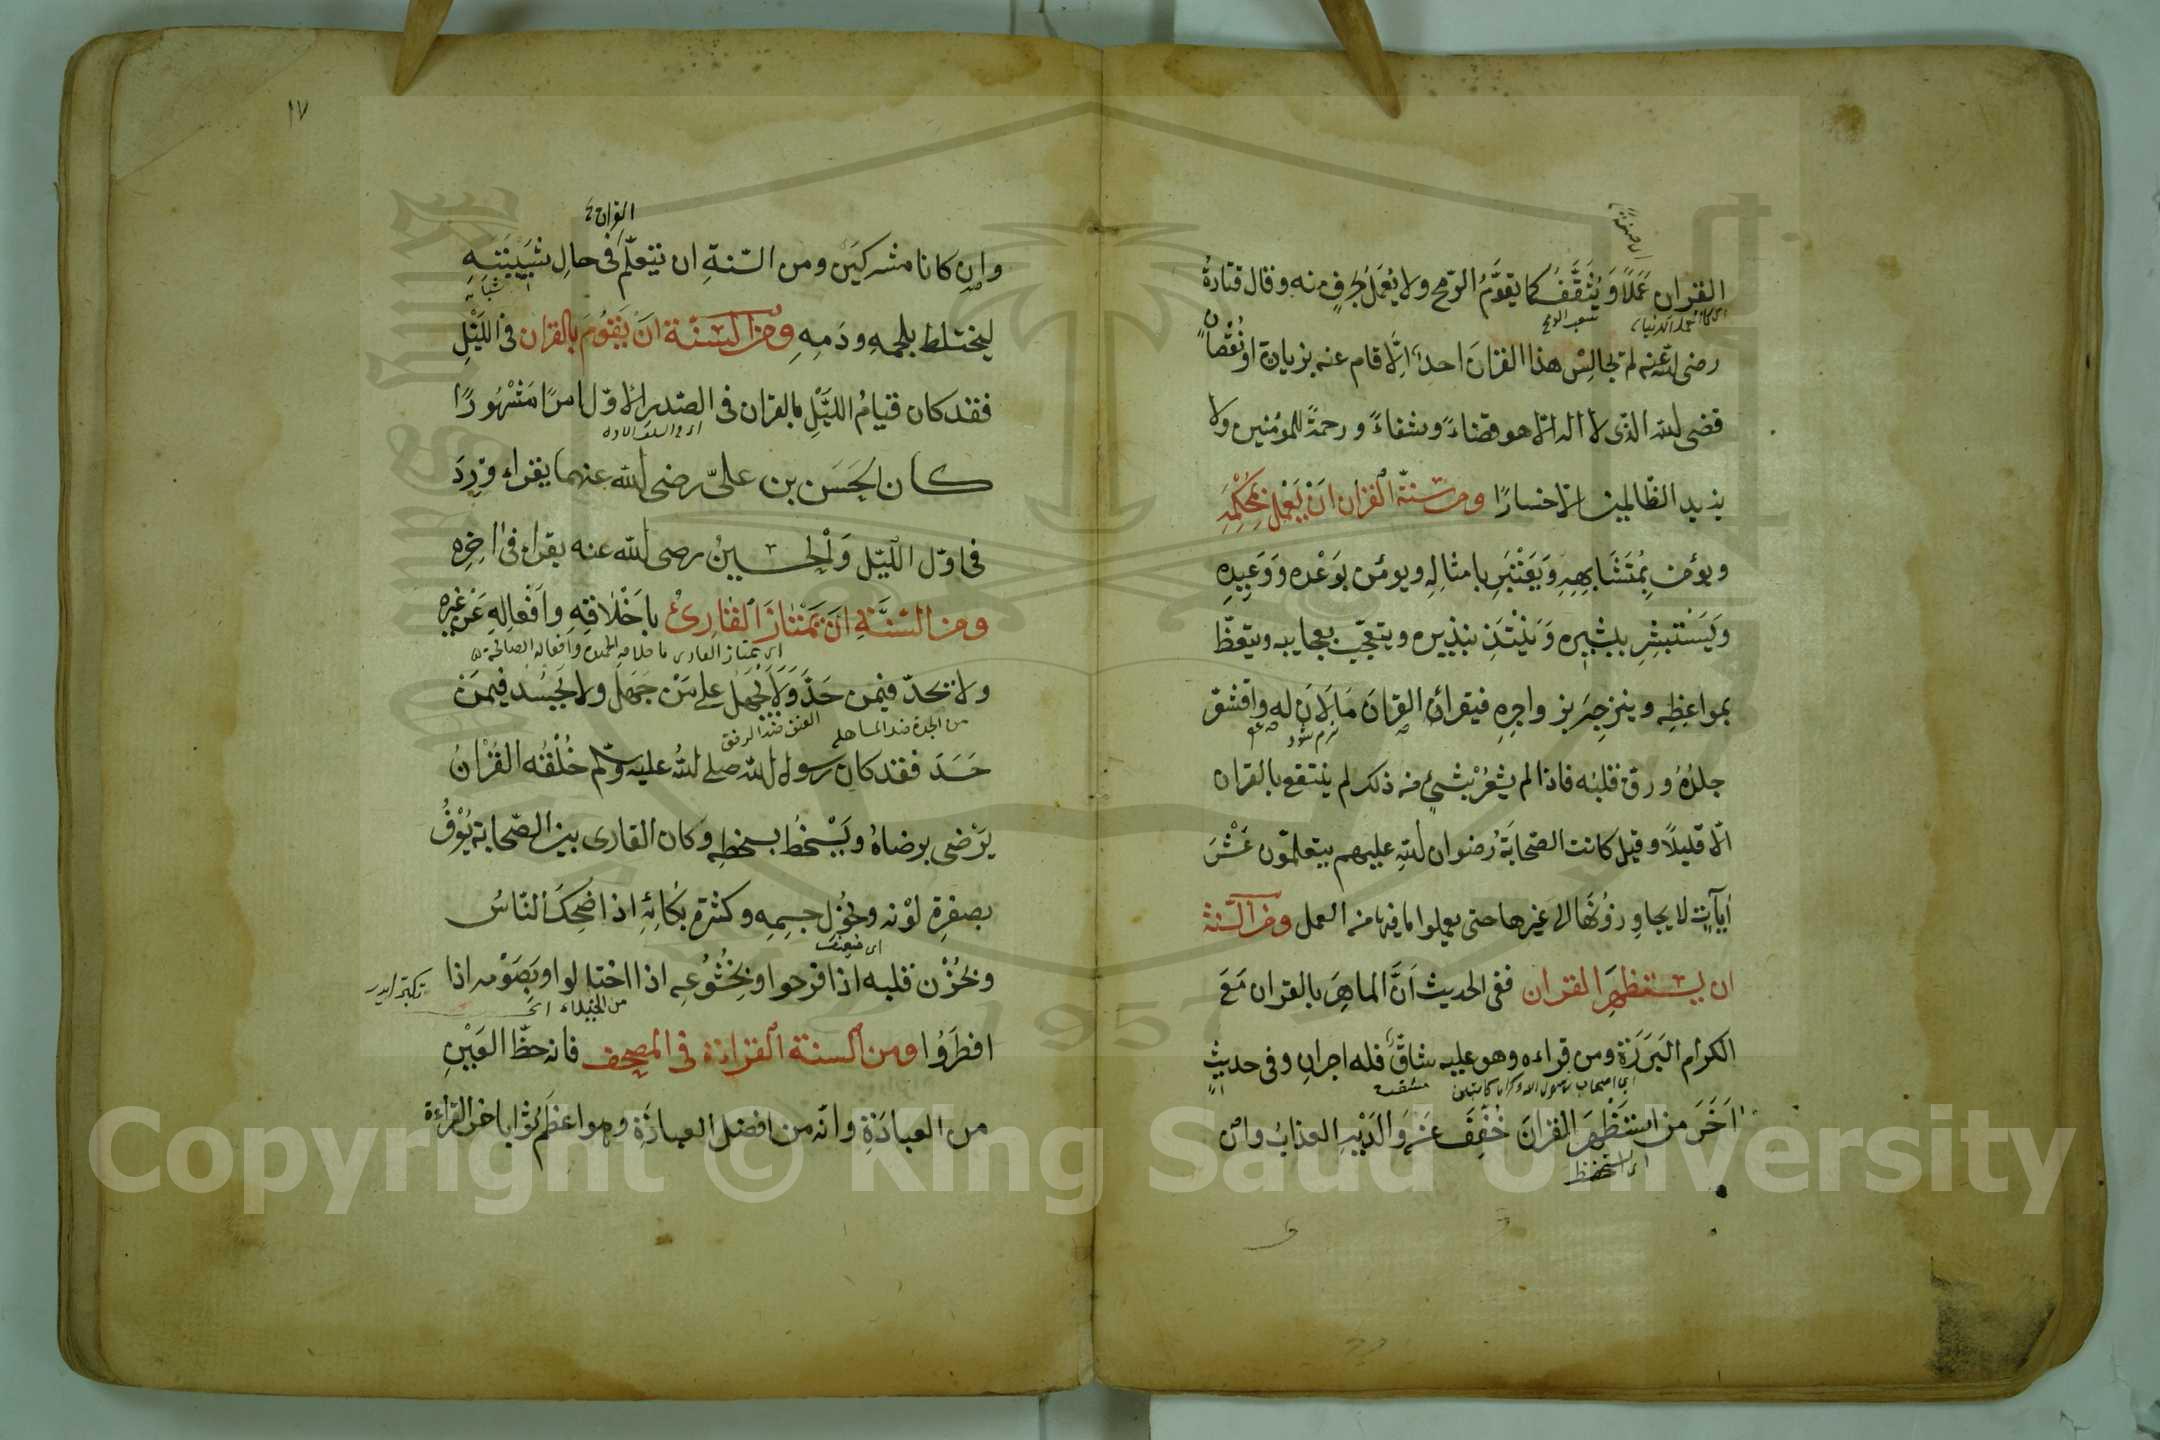 القران عَمَلًا وَيُثَقَّفُ كما يقوَّمُ الرّمح ولا يُعْمَلُ بحرفٍ منه وقال قتادةُ
رضى الله عنه لم يجالِسْ هذا القرانَ احدٌ الّا قام عنه بزيادة او نُقْصانٍ
قضى الله الذى لا اله الّا هو قضاءً وشفاءً ورحمةً للمؤمنين ولا
يزيد الظّالمين الا خسارًا ومن سُنّة القران ان يَعْمل بمُحْكَمِهِ
ويؤمن بِمُتَشَابِهِهِ وَيَعْتَبِرَ بامثالِهِ ويومن بِوَعْدِه وَوَعِيدِهِ
وَيَسْتبشِر ببشيره وَيَنْتَذِر بنذيره ويتعجّب بعجايبه ويتّعظ
بمواعظِه وينزجِرَ بزواجِرِهِ فيقرأ القرانَ مَا لَانَ له واقشعرّ
جلدُهُ ورقّ قلبُه فاذا لم يشعُرْ بشئٍ من ذلك لم ينتفع بالقران
الّا قليلًا وقيل كانت الصّحابَةُ رضوان الله عليهم يتعلّمون عَشْرَ
اٰياتٍ لا يجاوِزُونَهَا الى غيرها حتى يعلموا ما فيها من العمل ومن السّنّة
ان يستظهِرَ القران ففى الحديث اَنَّ الماهِرَ بالقران مَعَ
الكرام البَرَرَة ومن قراءه وهو عليه شاقٌّ فله اجرانِ وفى حديثٍ
مشقت
اٰخَرَ من استَظْهَرَ القرانَ خُفِّفَ عَن وَالدَيْهِ العذابُ وان
اى استحفظ
١٧
القران
وان كانا مشركَيْن ومن السّنةِ ان يتعلّم فى حالِ شَبِيبَتِهِ
شبابه
ليختلط بلحمهِ ودَمِهِ ومن السّنّة انْ يَقومَ بالقران فى اللَيْلِ
فقد كان قيامُ الليَّلِ بالقران فى الصّدر الاوّل امرًا مَشْهُورًا
كان الحَسَن بن علىّ رضى الله عنهما يقراء وِرْدَه
فى اوّل اللّيْل وَالحسينُ رضى الله عنه يقراء فى اٰخِرِه
ومن السّنَّةِ ان يَمْتَازَ القارئ باَخْلَاقِهِ واَفْعَالِهِ عَنْ غيْرِهِ
اى يمتاز القارى باخلاقه الحميدة وافعاله الصالحة
ولا يَحِدّ فيمن حَدَّ وَلَا يَجْهَلُ على مَنْ جَهَلَ ولا يَحْسُد فيمَنْ
العنف ضد الرفق
حَسَدَ فقد كان رسول الله صلى الله عليه وسلّم خُلْقُه القُرْاٰنُ
يَرْضى برضاهُ ويَسْخَطُ بسخطِهِ وكان القارى بين الصّحابة يُعْرَفُ
بصفرةِ لوْنه ونحُول جسمِهِ وكثرة بكائِهِ اذا ضَحِكَ النّاسُ
اى ضعف
وبحُزْن قلبه اذا فرحوا وبخُشُوعِه اذا اختالوا وبصَوْمه اذا
من الخيلاء
افطَرُوا ومن السنة القراءة فى المصحف فانه حظّ العَيْنِ
من العبادَةِ وانّه من افضل العبادَةِ وهو اعظَم ثوابا من القراءة